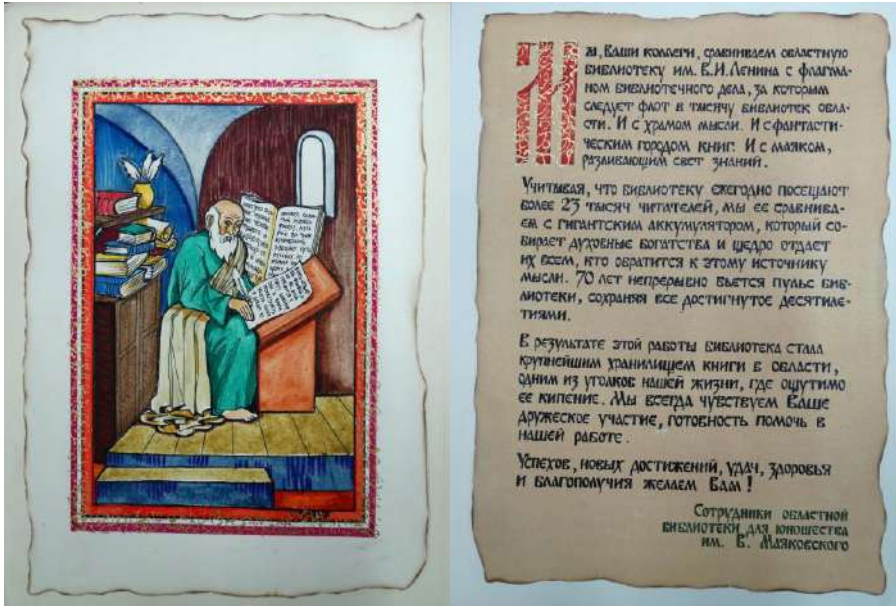 Мы, Ваши коллеги, сравниваем областную
библиотеку им. В.И.Ленина с флагма-
ном библиотечного дела, за которым
следует флот в тысячу библиотек обла-
сти. И с храмом мысли. И с фантасти-
ческим городом книг. И с маяком,
разливающим свет знаний.
Учитывая, что библиотеку ежегодно посещают
более 23 тысяч читателей, мы ее сравнива-
ем с гигантским аккумулятором, который со-
бирает духовные богатства и щедро отдает
их всем, кто обратится к этому источнику
мысли. 70 лет непрерывно бьется пульс биб-
лиотеки, сохраняя все достигнутое десятиле-
тиями.
В результате этой работы библиотека стала
крупнейшим хранилищем книги в области,
одним из уголков нашей жизни, где ощутимо
ее кипение. Мы всегда чувствуем Ваше
дружеское участие, готовность помочь в
нашей работе.
Успехов, новых достижений, удач, здоровья
и благополучия желаем Вам!
Сотрудники областной
библиотеки для юношества
им. В. Маяковского